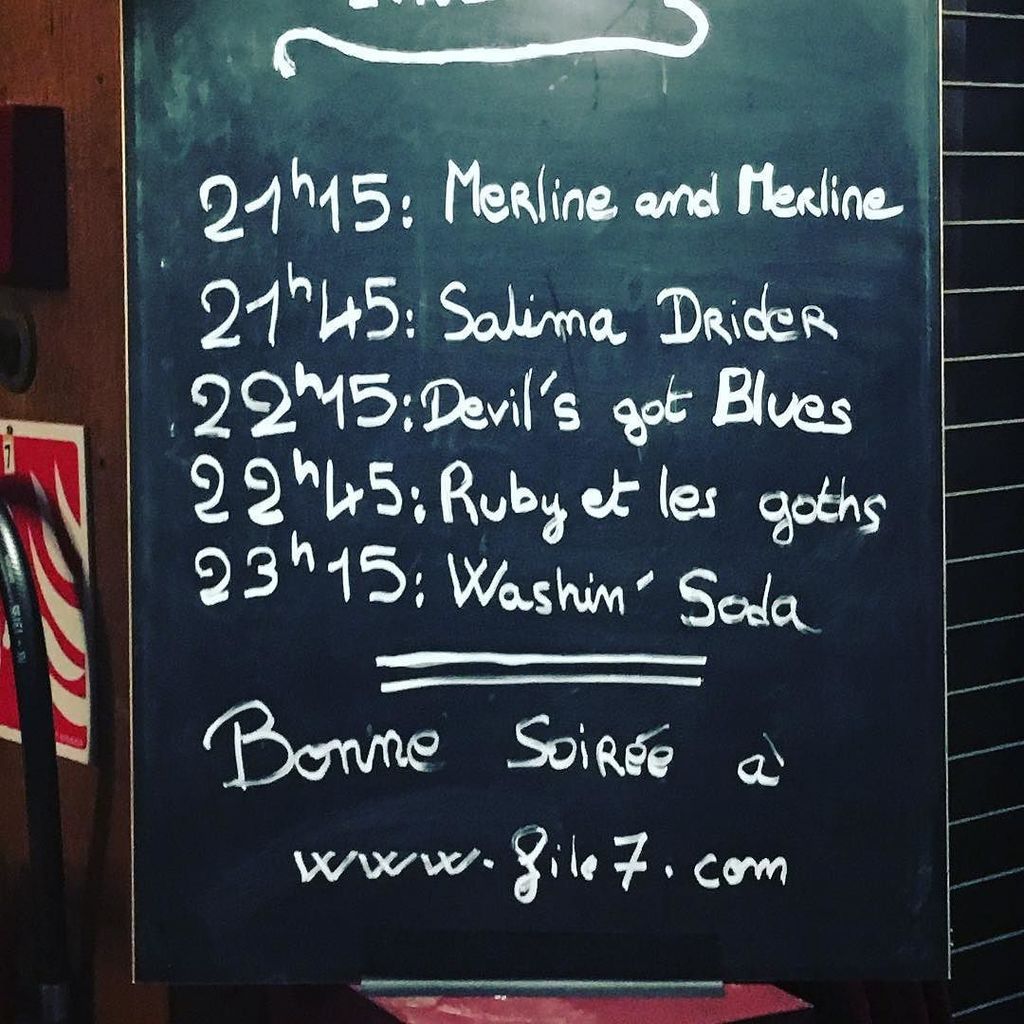 21h15: Merline and Merline
21h45: Salima Drider
22h15: Devil's got Blues
22h45: Ruby et les goths
23h15: Washin' Soda
Bonne Soirée à
www.file7.com
7